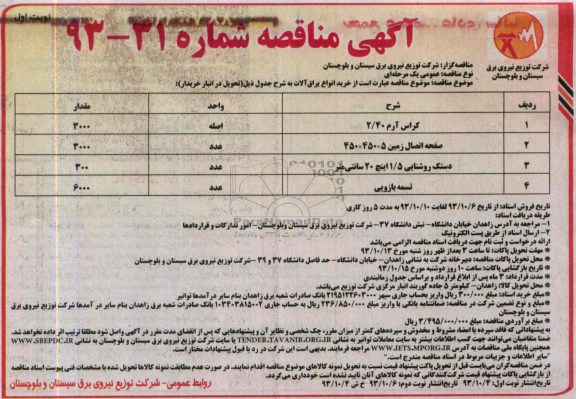 نوبت اول
آگهی مناقصه شماره ۳۱-۹۳
شرکت توزیع نیروی برق
سیستان و بلوچستان
مناقصه‌گزار: شرکت توزیع نیروی برق سیستان و بلوچستان
نوع مناقصه: عمومی یک مرحله‌ای
موضوع مناقصه: موضوع مناقصه عبارت است از خرید انواع یراق‌آلات به شرح جدول ذیل(تحویل در انبار خریدار):
ردیف شرح واحد مقدار
۱ کراس آرم ۲/۴۰ اصله ۳۰۰۰
۲ صفحه اتصال زمین ۵*۴۵۰*۴۵۰ عدد ۳۰۰۰
۳ دستک روشنایی ۱/۵ اینچ ۲۰ سانتی‌متر عدد ۳۰۰
۴ تسمه بازویی عدد ۶۰۰۰
تاریخ فروش اسناد: از تاریخ ۹۳/۱۰/۶ لغایت ۹۳/۱۰/۱۰ به مدت ۵ روز کاری
طریقه دریافت اسناد:
۱- مراجعه به آدرس زاهدان خیابان دانشگاه- نبش دانشگاه ۳۷- شرکت توزیع نیروی برق سیستان وبلوچستان- امور تدارکات و قراردادها
۲- ارسال اسناد از طریق پست الکترونیک
ارائه درخواست و ثبت نام جهت دریافت اسناد مناقصه الزامی می‌باشد
* مهلت تحویل پاکات: تا ساعت ۳ بعداز ظهر روز شنبه مورخ ۹۳/۱۰/۱۳
* محل تحویل پاکات مناقصه: دبیرخانه شرکت به نشانی زاهدان- خیابان دانشگاه- حد فاصل دانشگاه ۳۷ و ۳۹ -شرکت توزیع نیروی برق سیستان و بلوچستان
* تاریخ بازگشایی پاکات: ساعت ۱۰ روز دوشنبه مورخ ۹۳/۱۰/۱۵
* مدت قرارداد: ۳ ماه پس از ابلاغ قرارداد و براساس جدول زمانبندی
* محل تحویل کالا: زاهدان- کیلومتر ۵ جاده کوربند انبار مرکزی شرکت توزیع می‌باشد.
* مبلغ خرید اسناد: مبلغ ۳۰۰/۰۰۰ ریال واریز بحساب جاری سپهر ۲۱۹۵۱۲۲۶۰۳۰۰۰ بانک صادرات شعبه برق زاهدان بنام سایر در آمدها توانیر
* مبلغ و نوع تضمین شرکت در مناقصه: ضمانتنامه بانکی یا واریز مبلغ ۲۳۶/۸۵۰/۰۰۰ ریال به حساب جاری ۰۱۰۳۴۰۳۸۱۵۰۰۲ بانک صادرات شعبه برق زاهدان بنام سایر در آمدها شرکت توزیع نیروی برق
سیستان و بلوچستان
* مبلغ برآوردی مناقصه: مبلغ ۳/۴۹۵/۰۰۰/۰۰۰ ریال می‌باشد
به پیشنهاداتی که فاقد سپرده یا امضاء مشروط و مخدوش و سپرده‌های کمتر از میزان مقرر، چک شخصی و نظایر آن و پیشنهادهایی که پس از انقضای مدت مقرر در آگهی واصل شود مطلقا ترتیب اثر داده نخواهد شد.
ضمنا متقاضیان می‌توانند جهت کسب اطلاعات بیشتر به سایت معاملات توانیر به نشانی TENDER.TAVANIR.ORG.IR یا سایت شرکت توزیع نیروی برق سیستان و بلوچستان به نشانی WWW.SBEPDC.IR
همچنین پایگاه ملی مناقصات به آدرس WWW.IETS.MPORG.IR مراجعه فرمایند. بدیهی است این شرکت در رد یا قبول پیشنهادات مختار است.
"سایر اطلاعات و جزییات مربوط در اسناد مناقصه مندرج است."
در ضمن مناقصه‌گران می‌بایست قبل از تحویل پاکت پیشنهاد قیمت نسبت به تحویل نمونه کالاهای موضوع مناقصه اقدام نمایند. در صورت عدم مطابقت نمونه کالاها تحویل شده با مشخصات فنی پیوست اسناد مناقصه
از بازگشایی پاکات پیشنهاد قیمت شرکت‌کنندگانی که نمونه کالاهای آنان تایید نشده است خودداری می‌گردد.
تاریخ انتشار نوبت اول: ۹۳/۱۰/۴ تاریخ انتشار نوبت دوم: ۹۳/۱۰/۶ خ ش ۹۳/۱۰/۴
روابط عمومی- شرکت توزیع نیروی برق سیستان و بلوچستان